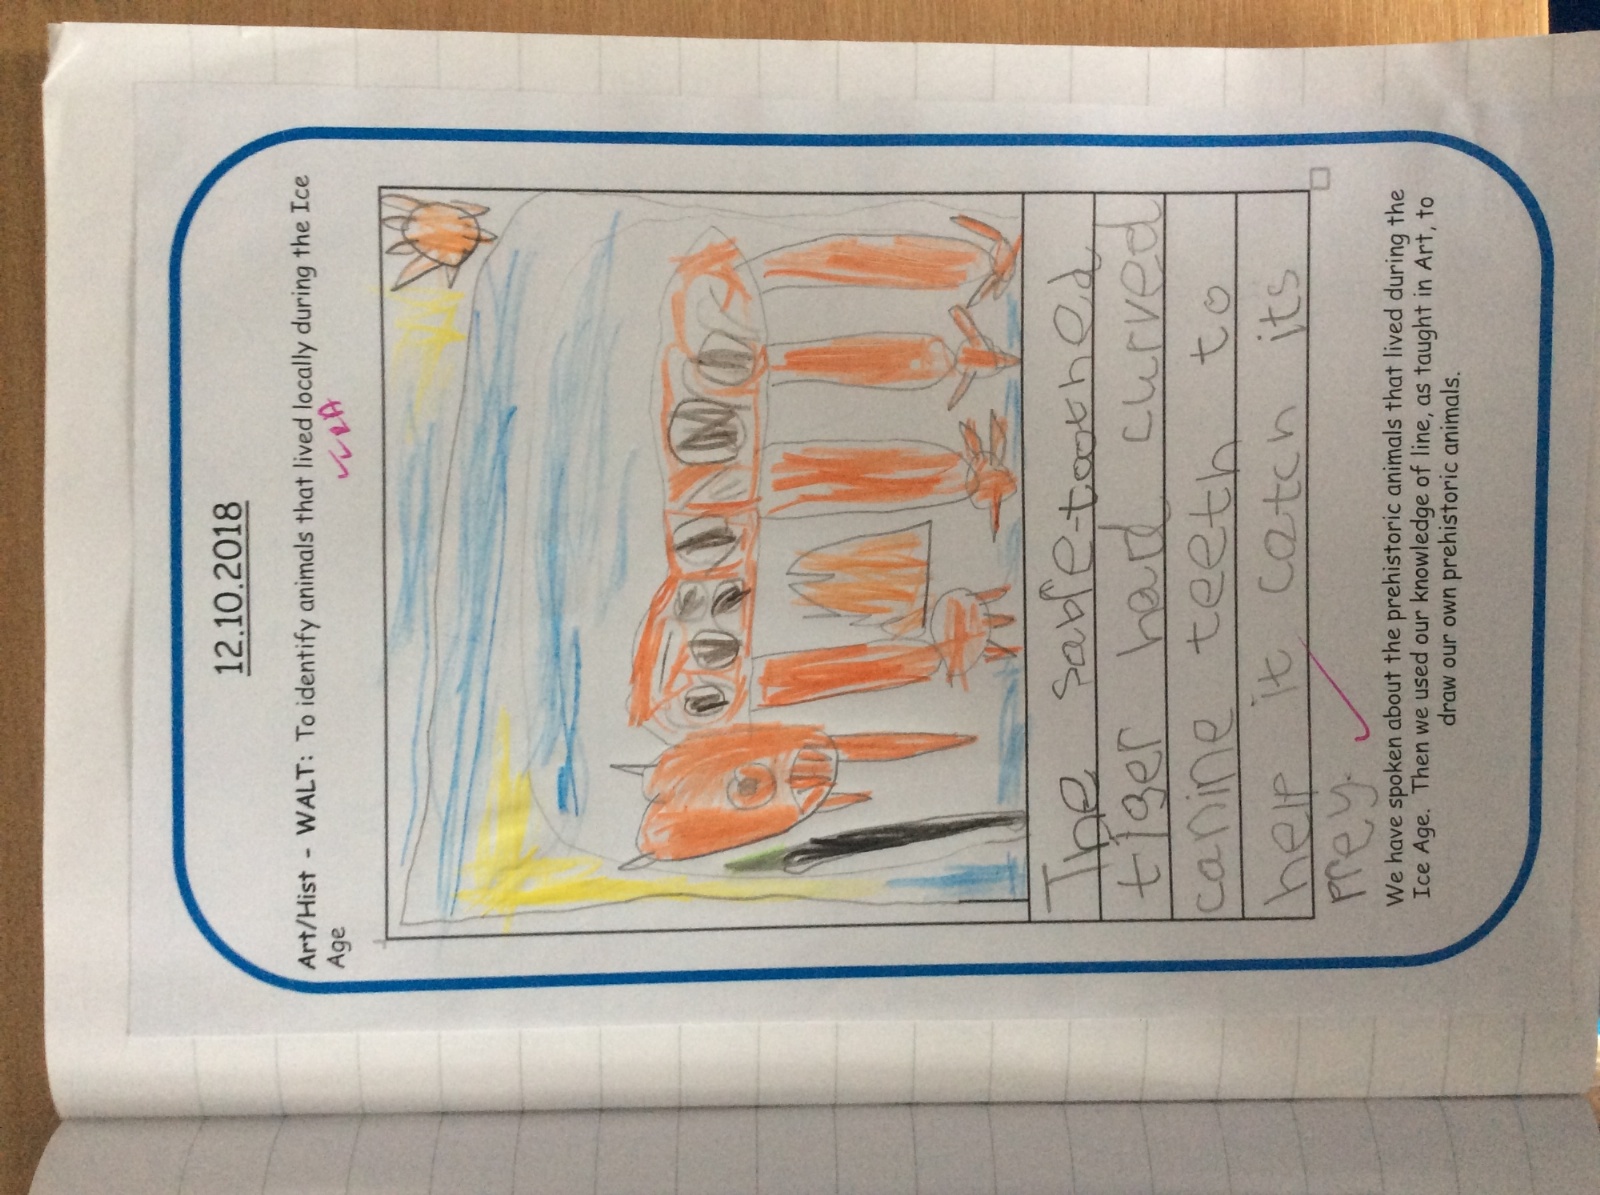 12.10.2018
Art/Hist - WALT: To identify animals that lived locally during the Ice
Age
The sabre-toothed
tiger had curved
canine teeth to
help it catch its
prey.
We have spoken about the prehistoric animals that lived during the
Ice Age. Then we used our knowledge of line, as taught in Art, to
draw our own prehistoric animals.